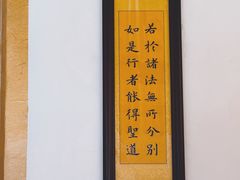 若於諸法無所分別
如是行者能得聖道